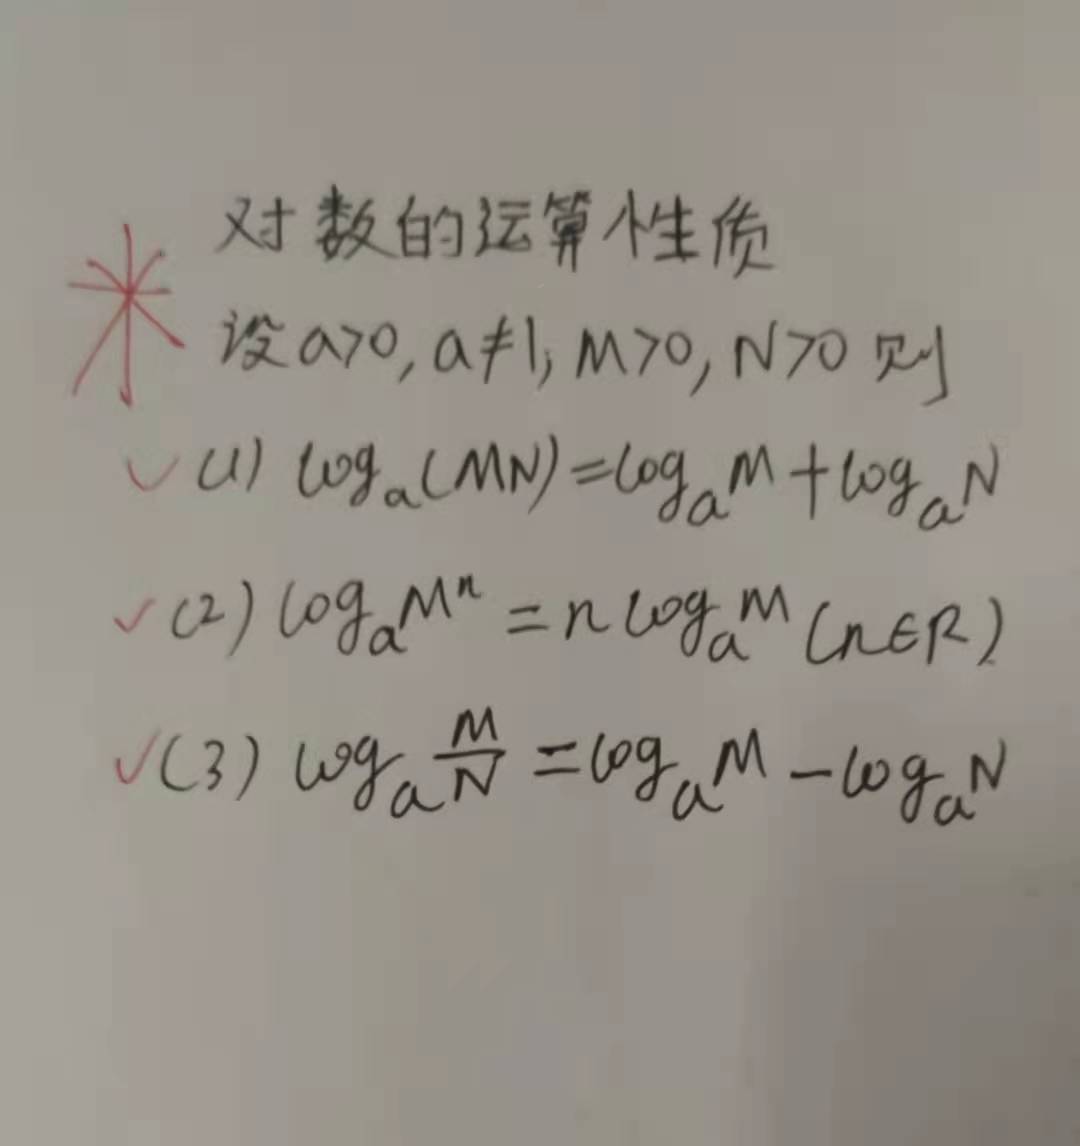 对数的运算性质
设a>0,a≠1,M>0,N>0则
(1) logₐ(MN)=logₐM+logₐN
(2) logₐMⁿ=nlogₐM(n∈R)
(3) logₐ\frac{M}{N}=logₐM-logₐN